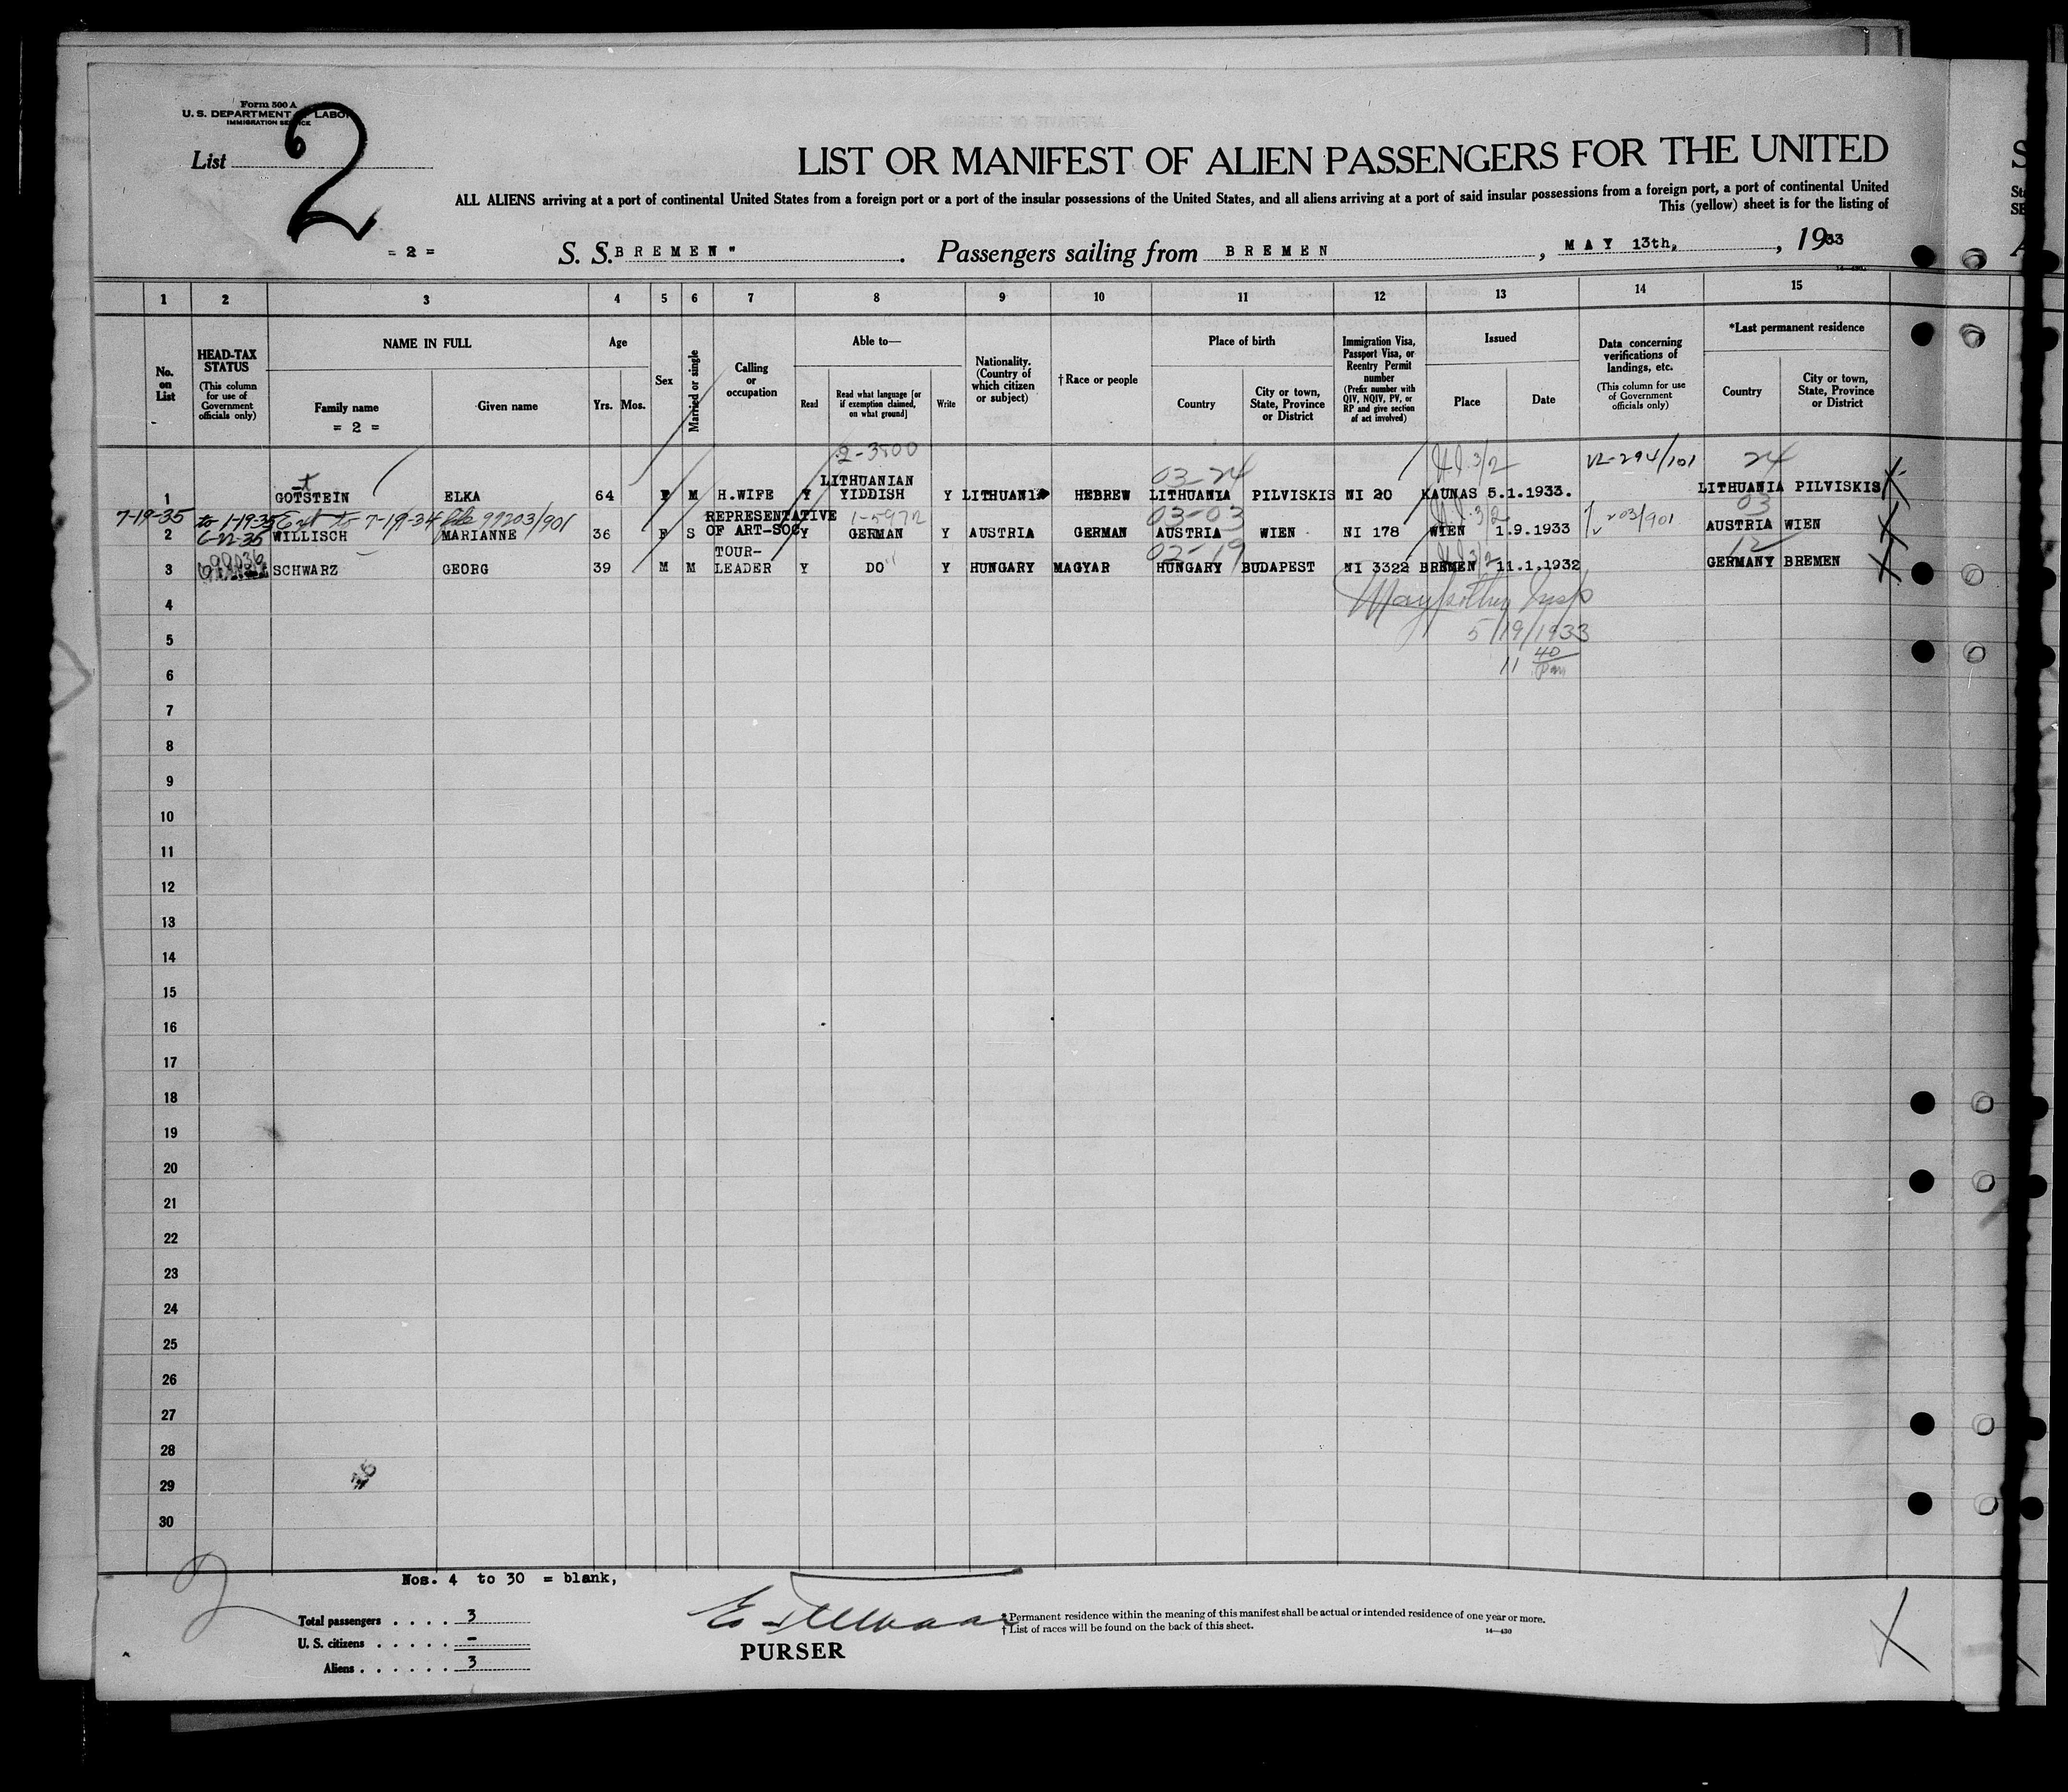 Form 500 A
U. S. DEPARTMENT OF LABOR
IMMIGRATION SERVICE
List
2
LIST OR MANIFEST OF ALIEN PASSENGERS FOR THE UNITED
ALL ALIENS arriving at a port of continental United States from a foreign port or a port of the insular possessions of the United States, and all aliens arriving at a port of said insular possessions from a foreign port, a port of continental United
This (yellow) sheet is for the listing of
= 2 = S. S. BREMEN" . Passengers sailing from BREMEN , MAY 13th, , 1933
1 2 3 4 5 6 7 8 9 10 11 12 13 14 15
No. on List
HEAD-TAX STATUS (This column for use of Government officials only)
NAME IN FULL
Family name
= 2 =
Given name
Age
Yrs. Mos.
Sex
Married or single
Calling or occupation
Able to—
Read
Read what language [or if exemption claimed, on what ground]
Write
Nationality. (Country of which citizen or subject)
†Race or people
Place of birth
Country
City or town, State, Province or District
Immigration Visa, Passport Visa, or Reentry Permit number (Prefix number with QIV, NQIV, PV, or RP and give section of act involved)
Issued
Place
Date
Data concerning verifications of landings, etc. (This column for use of Government officials only)
*Last permanent residence
Country
City or town, State, Province or District
2-3500 03-24 3/2 VL-294/101 24
1 GOTSTEIN ELKA 64 F M H.WIFE Y LITHUANIAN YIDDISH Y LITHUANIA HEBREW LITHUANIA PILVISKIS NI 20 KAUNAS 5.1.1933. LITHUANIA PILVISKIS
7-19-35 to 1-19-35 Ext to 7-19-34 file 99203/901 1-5972 03-03 3/2 203/901 03
2 6-22-35 WILLISCH MARIANNE 36 F S REPRESENTATIVE OF ART-SOC Y GERMAN Y AUSTRIA GERMAN AUSTRIA WIEN NI 178 WIEN 1.9.1933 AUSTRIA WIEN
02-19 3/2 12
3 SCHWARZ GEORG 39 M M TOUR-LEADER Y DO" Y HUNGARY MAGYAR HUNGARY BUDAPEST NI 3322 BREMEN 11.1.1932 GERMANY BREMEN
4
5/19/1933
5
11 40 pm
6
7
8
9
10
11
12
13
14
15
16
17
18
19
20
21
22
23
24
25
26
27
28
29
30
Nos. 4 to 30 = blank,
Total passengers . . . . 3
U. S. citizens . . . . . -
Aliens . . . . . . 3
PURSER
* Permanent residence within the meaning of this manifest shall be actual or intended residence of one year or more.
† List of races will be found on the back of this sheet.
14—430